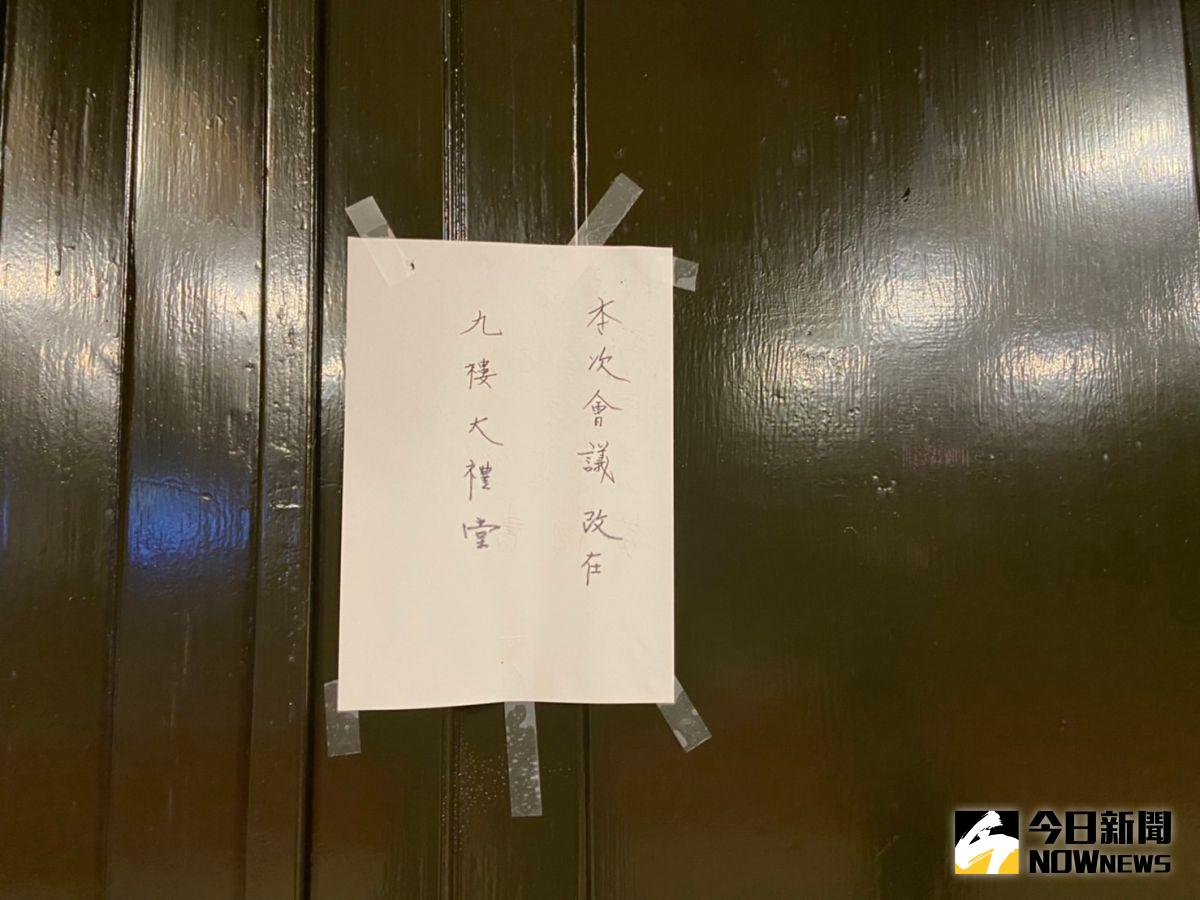 本次會議改在
九樓大禮堂
今日新聞
NOWNEWS